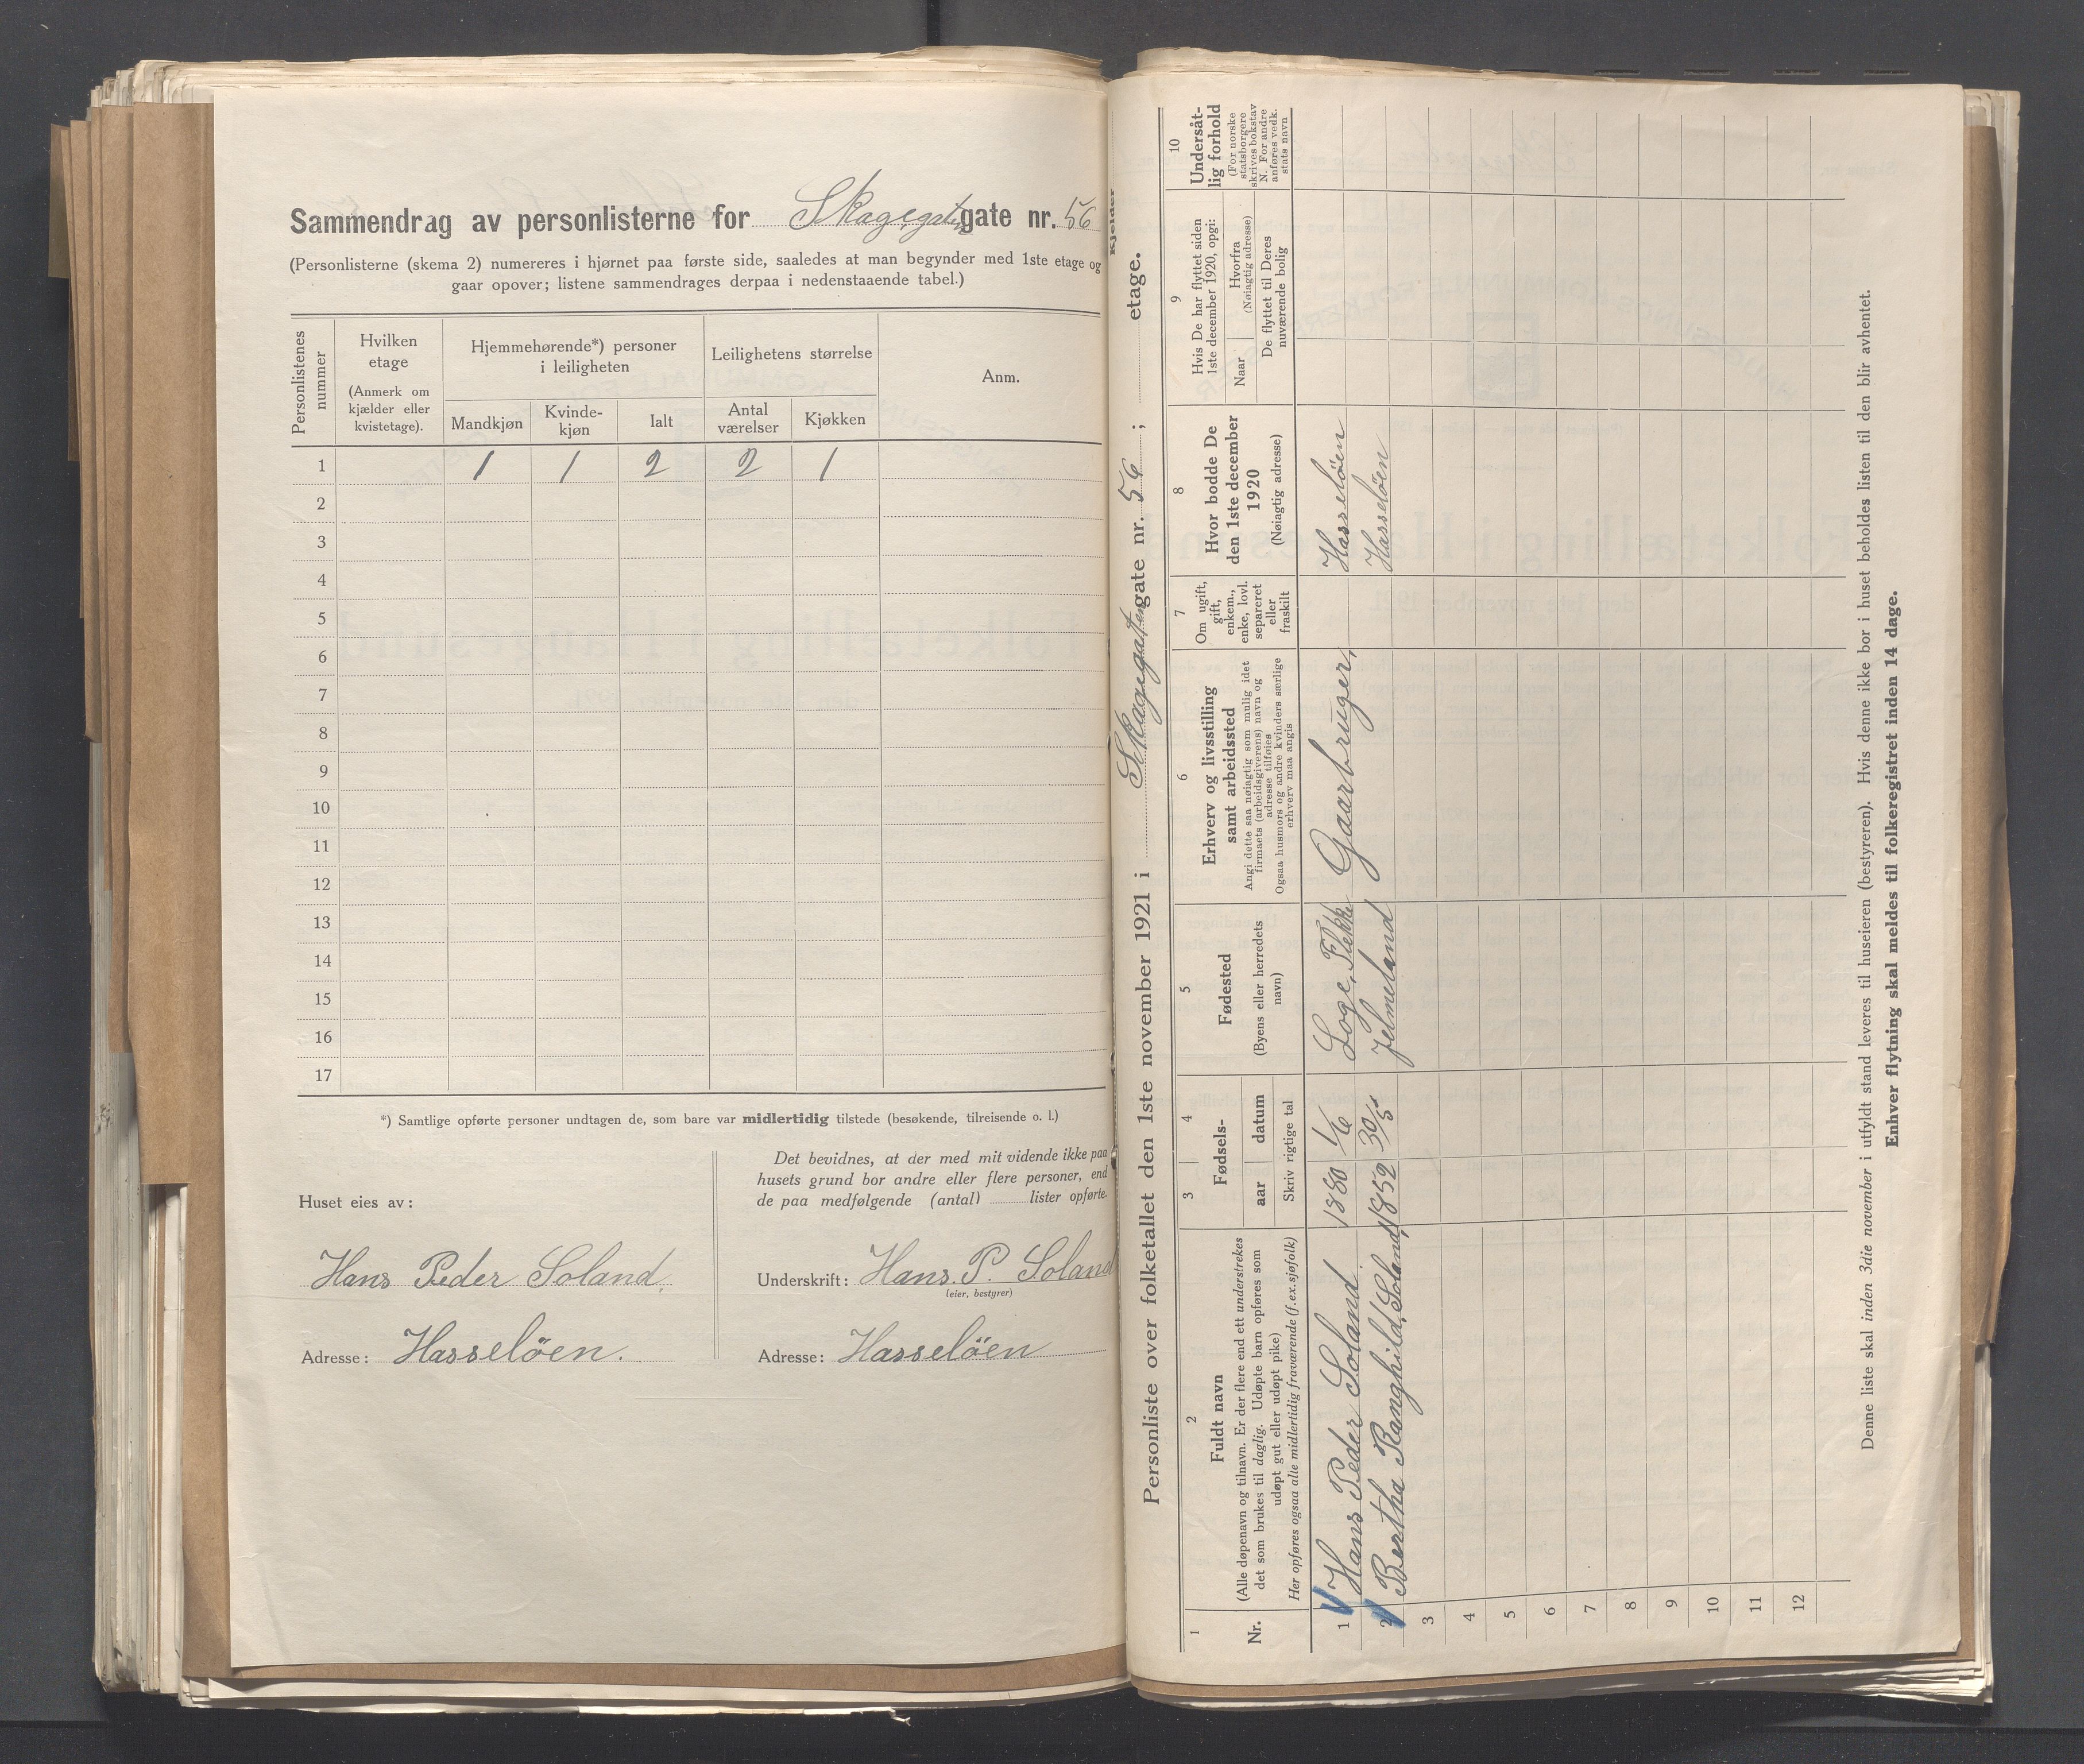 Sammendrag av personlisterne for Skagegaten gate nr. 56
(Personlisterne (skema 2) numereres i hjørnet paa første side, saaledes at man begynder med 1ste etage og
gaar opover; listene sammendrages derpaa i nedenstaaende tabel.)
Personlistenes nummer
Hvilken etage
(Anmerk om kjælder eller kvistetage).
Hjemmehørende*) personer i leiligheten
Leilighetens størrelse
Anm.
Mandkjøn
Kvinde-kjøn
Ialt
Antal værelser
Kjøkken
1 1 1 2 2 1
2
3
4
5
6
7
8
9
10
11
12
13
14
15
16
17
*) Samtlige opførte personer undtagen de, som bare var midlertidig tilstede (besøkende, tilreisende o. l.)
Huset eies av:
Hans Peder Soland.
Adresse: Hasselöen.
Det bevidnes, at der med mit vidende ikke paa
husets grund bor andre eller flere personer, end
de paa medfølgende (antal) lister opførte.
Underskrift: Hans. P. Soland
(eier, bestyrer)
Adresse: Hasselöen
Kjelder
Personliste over folketallet den 1ste november 1921 i Skagegaten gate nr. 56 ; etage.
1
Nr.
2
Fuldt navn
(Alle døpenavn og tilnavn. Er der flere end ett understrekes
det som brukes til daglig. Udøpte barn opføres som
udøpt gut eller udøpt pike)
Her opføres ogsaa alle midlertidig fraværende (f.ex.sjøfolk)
3 4
Fødsels-
aar datum
Skriv rigtige tal
5
Fødested
(Byens eller herredets
navn)
6
Erhverv og livsstilling
samt arbeidssted
Angi dette saa nøiagtig som mulig idet
firmaets (arbeidsgiverens) navn og
adresse tilføies
Ogsaa husmors og andre kvinders særlige
erhverv maa angis
7
Om ugift,
gift,
enkem.,
enke, lovl.
separeret
eller
fraskilt
8
Hvor bodde De
den 1ste december
1920
(Nøiagtig adresse)
9
Hvis De har flyttet siden
1ste december 1920, opgi:
Naar
Hvorfra
(Nøiagtig adresse)
De flyttet til Deres
nuværende bolig
10
Undersåt-
lig forhold
(For norske
statsborgere
skrives bokstav
N. For andre
anføres vedk.
stats navn
1 Hans Peder Soland. 1880 1/6 Loge, Flekke Gaarbruger, Hasselöen
2 Bertha Ranghild, Soland, 1852 30/5 Jelmeland Hasselöen
3
4
5
6
7
8
9
10
11
12
Denne liste skal inden 3die november i utfyldt stand leveres til huseieren (bestyreren). Hvis denne ikke bor i huset beholdes listen til den blir avhentet.
Enhver flytning skal meldes til folkeregistret inden 14 dage.